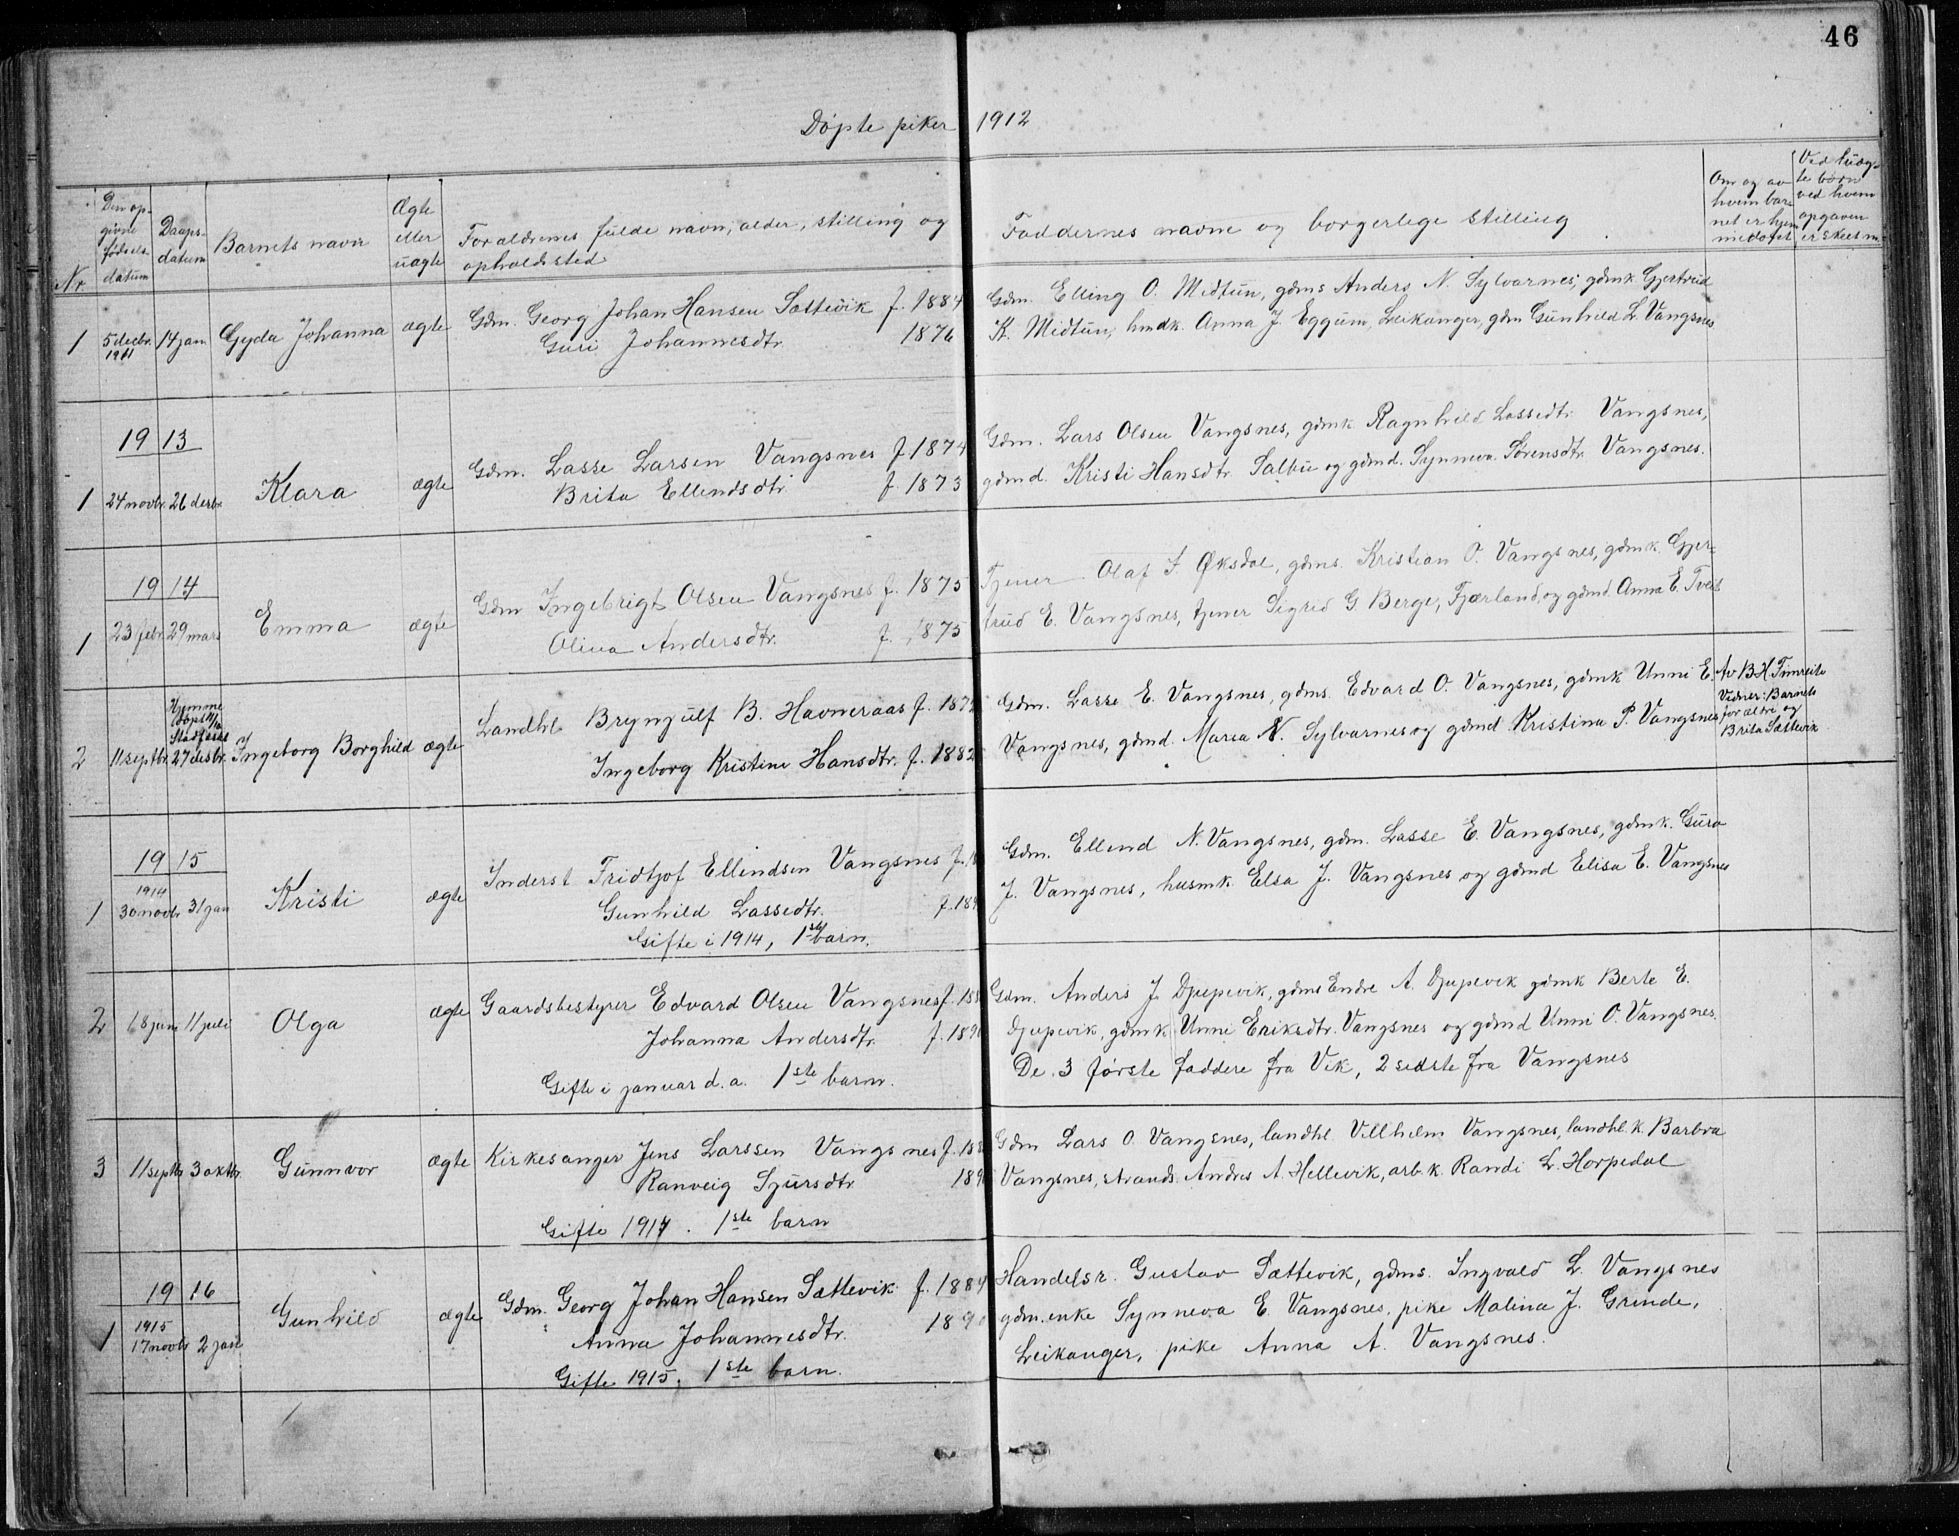 46
Døpte piker 1912
Nr.
Den op-
givne
fødsels-
datum
Daaps-
datum
Barnets navn
Ægte
eller
uægte
Forældrenes fulde navn, alder, stilling og
opholdssted
Faddernes navne og borgerlege stilling
Om og av
hvem bar-
net er hjem
medøpt
Ved uæg-
te børn
ved hvem
opgaven
er skeet
1 5 decbr. 1911 14 jan Gyda Johanna ægte Gdm. Georg Johan Hansen Sættevik f. 1884
Guri Johannesdtr. 1876
Gdm. Elling O. Midtun, gdms Anders N. Sylvarnes, gdmk Gjertrud
K. Midtun, hmdk. Anna J. Eggum, Leikanger, gdm Gunhild L. Vangsnes
1913
1 24 novbr. 26 desbr. Klara ægte Gdm. Lasse Larsen Vangsnes f. 1874
Brita Ellendsdtr. f. 1873
Gdm. Lars Olsen Vangsnes, gdmk Ragnhild Lassedtr. Vangsnes,
gdmd. Kristi Hansdtr. Salbu og gdmd. Synneva Sørensdtr. Vangsnes.
1914
1 23 febr. 29 mars Emma ægte Gdm Ingebrigt Olsen Vangsnes f. 1875
Olina Andersdtr. f. 1875
Tjener Olaf I. Øksdal, gdms. Kristian O. Vangsnes, gdmk. Gjer-
trud E. Vangsnes, tjener Sigrid G Berge, Fjærland, og gdmd. Anna E. Tveit
2 11 septbr. Hjemme
døpt
Stadfæst
27 desbr. Ingeborg Borghild ægte Landhl Brynjulf B. Havneraas f.
Ingeborg Kristine Hansdtr. f. 1882
Gdm. Lasse E. Vangsnes, gdms. Edvard O. Vangsnes, gdmk Unni E.
Vangsnes, gdmd. Maria N. Sylvarnes og gdmd Kristina P. Vangsnes
Av B H Finreite
Vidner: Barnets
forældre og
Brita Sættevik
1915
1 1914
30 novbr 31 jan Kristi ægte Inderst Fridtjof Ellendsen Vangsnes f.
Gunhild Lassedtr. f. 189
Gifte i 1914, 1ste barn.
Gdm. Ellend N. Vangsnes, gdm. Lasse E. Vangsnes, gdmk. Guro
J. Vangsnes, husmk. Elsa J. Vangsnes og gdmd Elisa E. Vangsnes
2 8 juni 11 juli Olga ægte Gaardsbestyrer Edvard Olsen Vangsnes f. 188
Johanna Andersdtr. f. 189
Gifte i januar d. a. 1ste barn.
Gdm. Anders J. Djupevik, gdms Endre A. Djupevik gdmk Berte E.
Djupevik, gdmk Unni Eriksdtr. Vangsnes og gdmd Unni O. Vangsnes.
De 3 første faddere fra Vik, 2 sidste fra Vangsnes
3 11 septbr 3 oktbr. Gunnvor ægte Kirkesanger Jens Larssen Vangsnes f. 188
Ranveig Sjursdtr 189
Gifte 1914. 1ste barn
Gdm Lars O. Vangsnes, landhl. Villhelm Vangsnes, landhl. k. Barbra
Vangsnes, strands. Andres A. Hellevik, arb. k. Randi L. Horpedal
1916
1 1915
17 novbr 2 jan Gunhild ægte Gdm. Georg Johan Hansen Sættevik f. 1884
Anna Johannesdtr. 189
Gifte 1915. 1ste barn.
Handelsr. Gustav Sættevik, gdms. Ingvald L. Vangsnes
gdm.enke Synneva E. Vangsnes, pike Malina J. Grinde,
Leikanger, pike Anna A. Vangsnes.